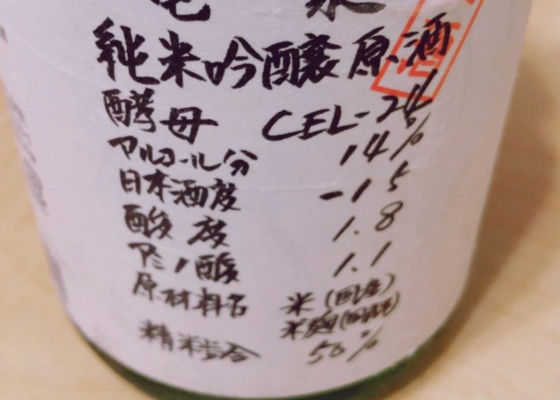 亀泉
純米吟醸原酒
酵母 CEL-24
アルコール分 14%
日本酒度 -15
酸度 1.8
アミノ酸 1.1
原材料名 米(国産)
米麹(国産米)
精米歩合 50%